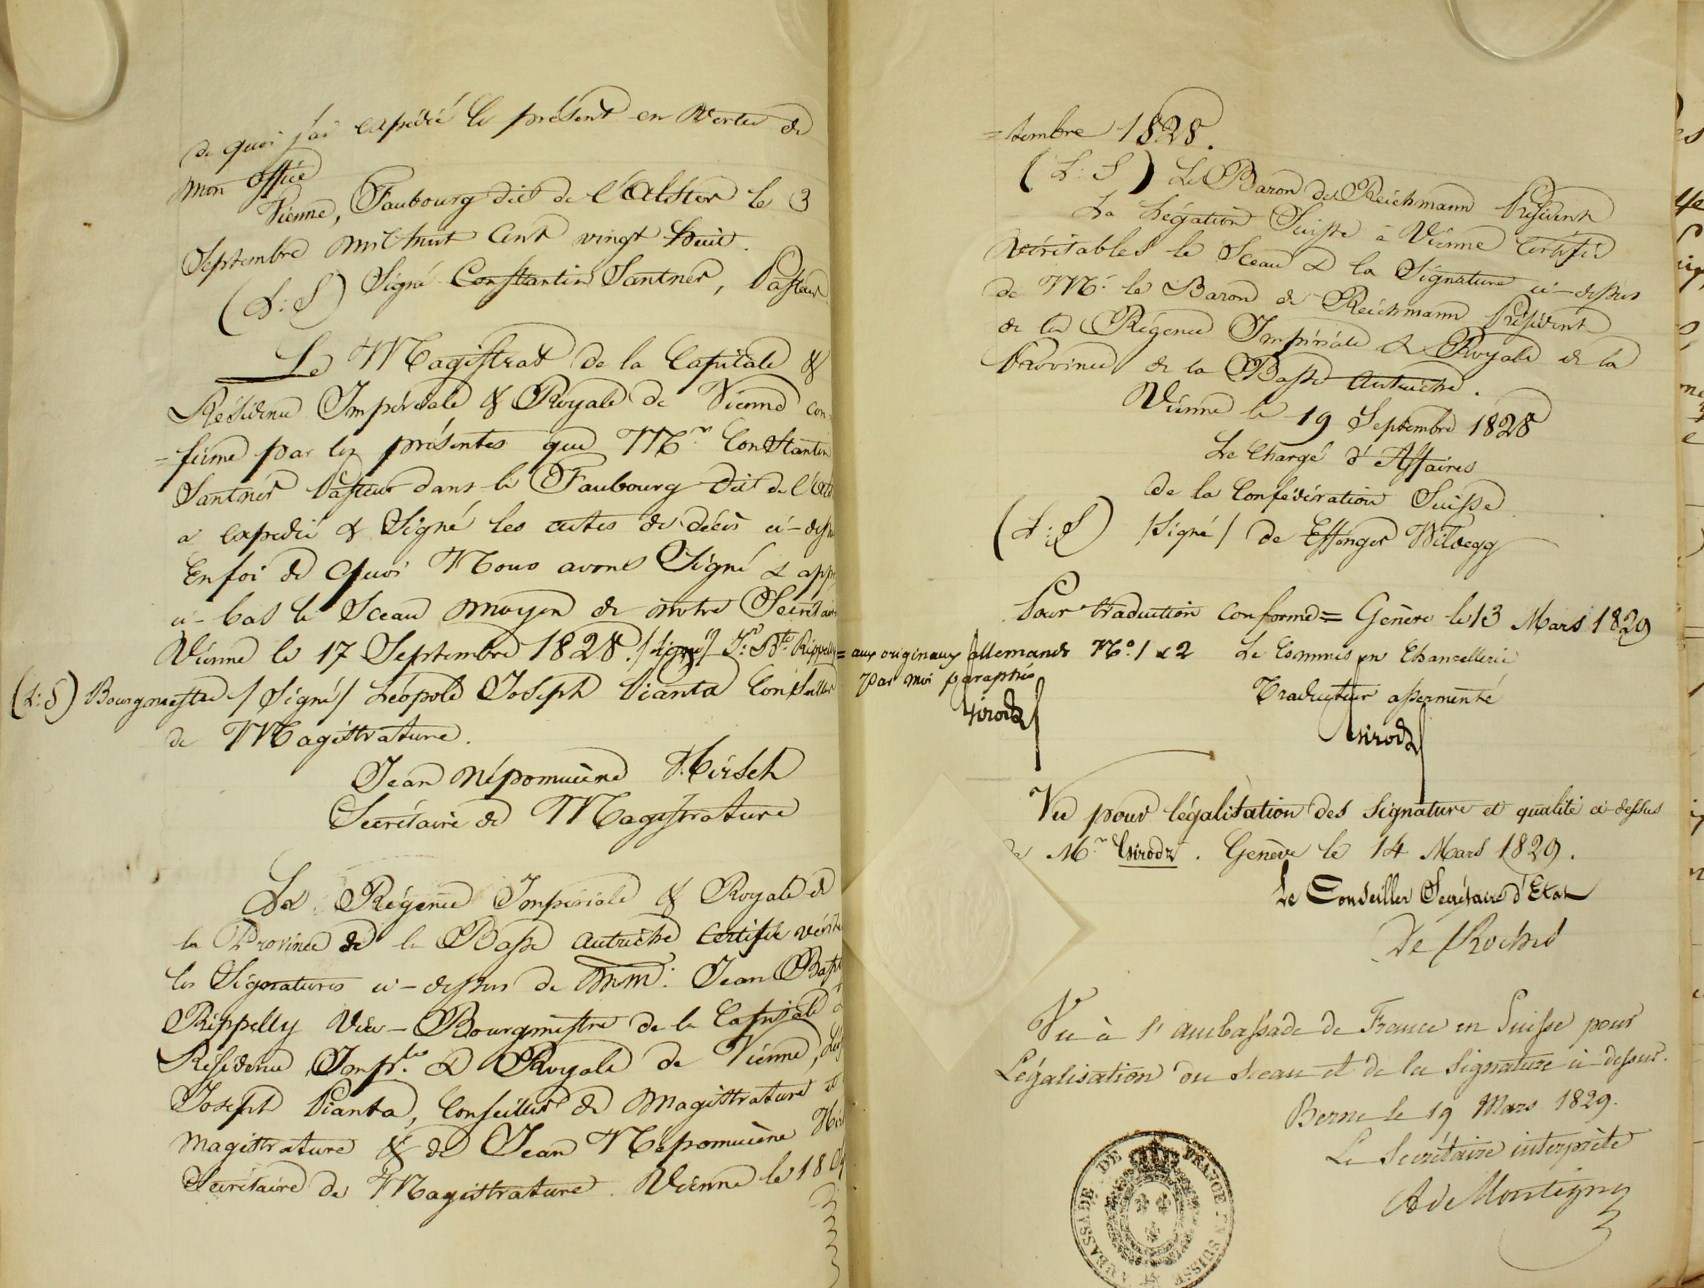 de quoi j'ai expédié le présent en vertu de
mon office
Vienne, Faubourg dit de l'Alster le 3
Septembre mil huit Cent vingt huit.
(L: S) Signé Constantin Santner, Pasteur
Le Magistrat de la Capitale &
Résidence Impériale & Royale de Vienne con-
-firme par les présentes que Mr. Constantin
Santner Pasteur dans le Faubourg dit de l'
a expédié & Signé les actes de décès ci-dessus
En foi de Quoi Nous avons Signé & app
ci-bas le Sceau moyen de notre Secrétar
Vienne le 17 Septembre 1828. /signé/ Jn. Bte. Rippelly
(L: S) Bourgmestre /Signé/ Léopold Joseph Pianta Conseiller
de Magistrature.
Jean Népomucène Hirsch
Secrétaire de Magistrature
La Régence Impériale & Royale de
la Province de la Basse autriche Certifie vérita
les Signatures ci-dessus de MM: Jean Bapt
Rippelly Vice-Bourgmestre de la Capitale &
Résidence Imple. & Royale de Vienne,
Joseph Pianta, Conseiller de Magistrature et
Magistrature & de Jean Népomucène Hir
Secrétaire de Magistrature. Vienne le 18
=tembre 1828.
(L: S) Le Baron de Reichmann Président
La Légation Suisse à Vienne Certifie
véritables le Sceau & la Signature ci-dessus
de Mr. le Baron de Reichmann Président
de la Régence Impériale & Royale de la
Province de la Basse autriche.
Vienne le 19 Septembre 1828
Le Chargé d'Affaires
de la Confédération Suisse
(L: S) /Signé/ de Effinger Wildegg
Pour traduction conforme = Genève le 13 Mars 1829
= aux originaux allemands No. 1 & 2 Le Commis en Chancellerie
par moi paraphés Traducteur assermenté
Girodz Girodz
Vu pour légalisation des signature et qualité ci-dessus
de Mr. Girodz. Genève le 14 Mars 1829.
Le Conseiller Secrétaire d'Etat
De Roches
Vu à l'ambassade de France en Suisse pour
Légalisation du sceau et de la signature ci-dessus.
Berne le 19 Mars 1829.
Le Secrétaire interprète
A de Montigny
AMBASSADE DE FRANCE EN SUISSE